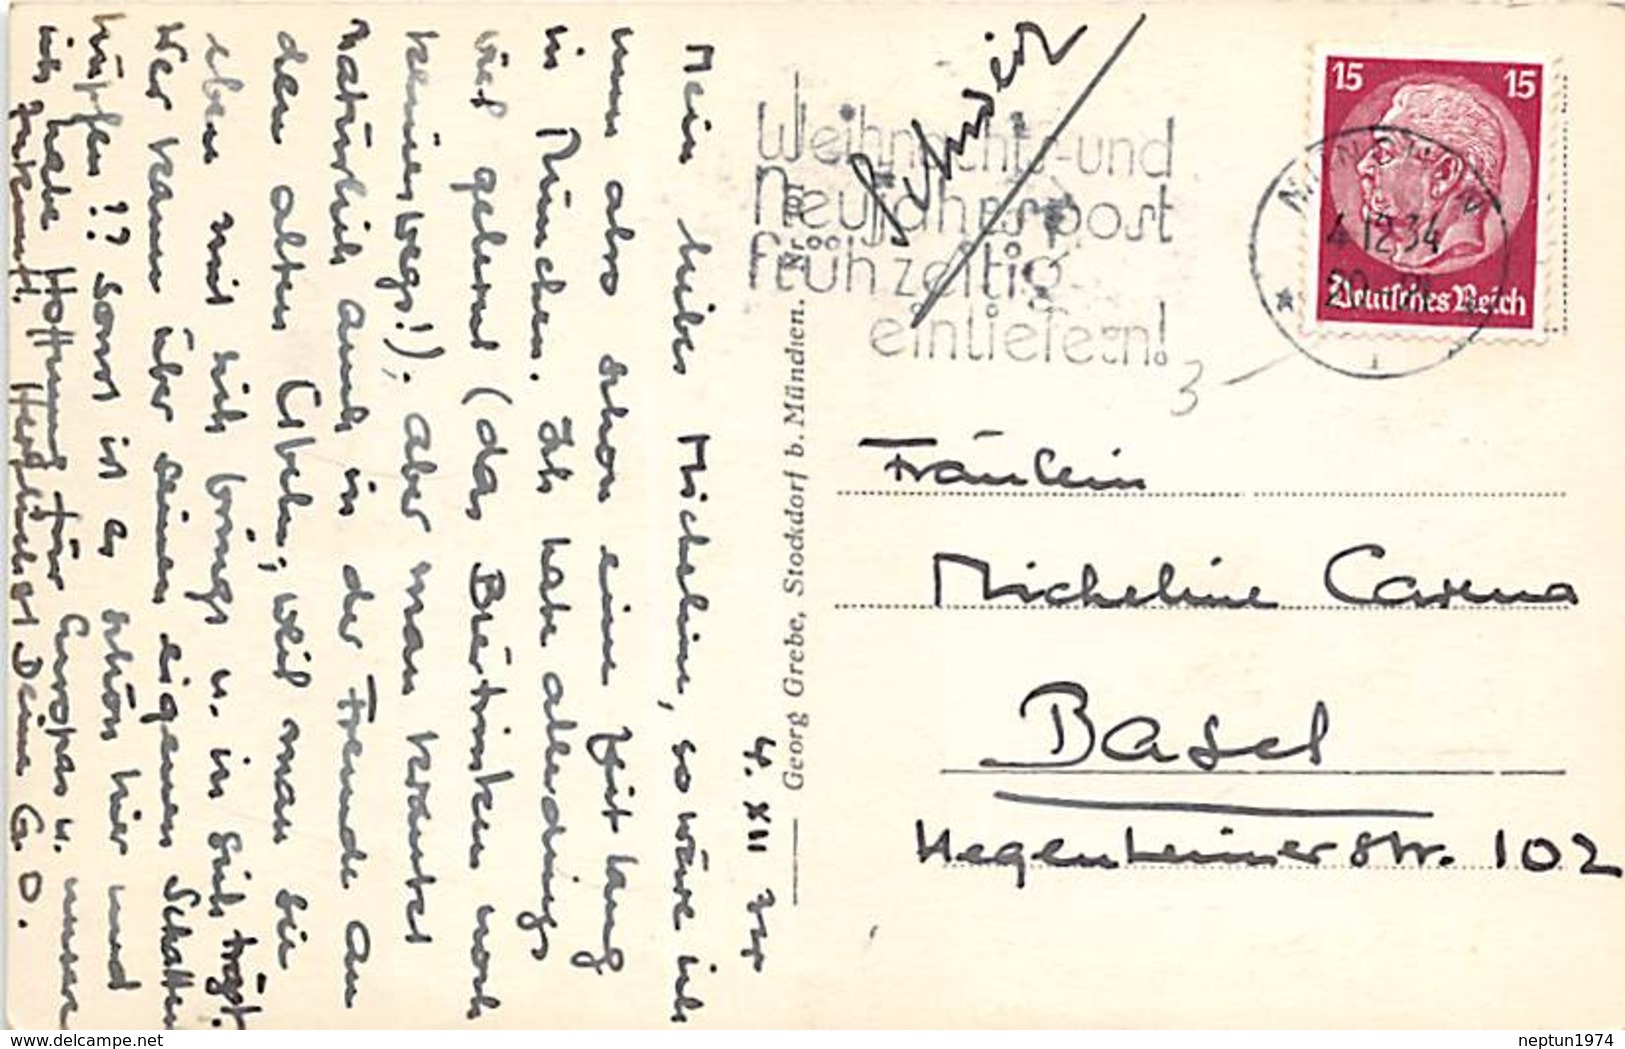 4. XII 34
Mein liebes Micheline, so wäre ich
nun also schon eine Zeit lang
in München. Ich habe allerdings
viel gelernt (das Biertrinken noch
keineswegs!). Aber man krankt
natürlich auch in der Fremde an
den alten Übeln, weil man sie
eben mit sich bringt u. in sich trägt.
Wer kann über seinen eigenen Schatten
hüpfen?? Sonst ist es schön hier und
ich habe Hoffnung für Europas u. unsere
Zukunft. Herzlichst Deine G. O.
Georg Grebe, Stockdorf b. München.
Weihnachts- und
Neujahrspost
frühzeitig
einliefern!
Schweiz
15 15
Deutsches Reich
MÜNCHEN
4.12.34
1
3
Fräulein
Micheline
Basel
Hegenheimerstr. 102
delcampe.net
neptun1974